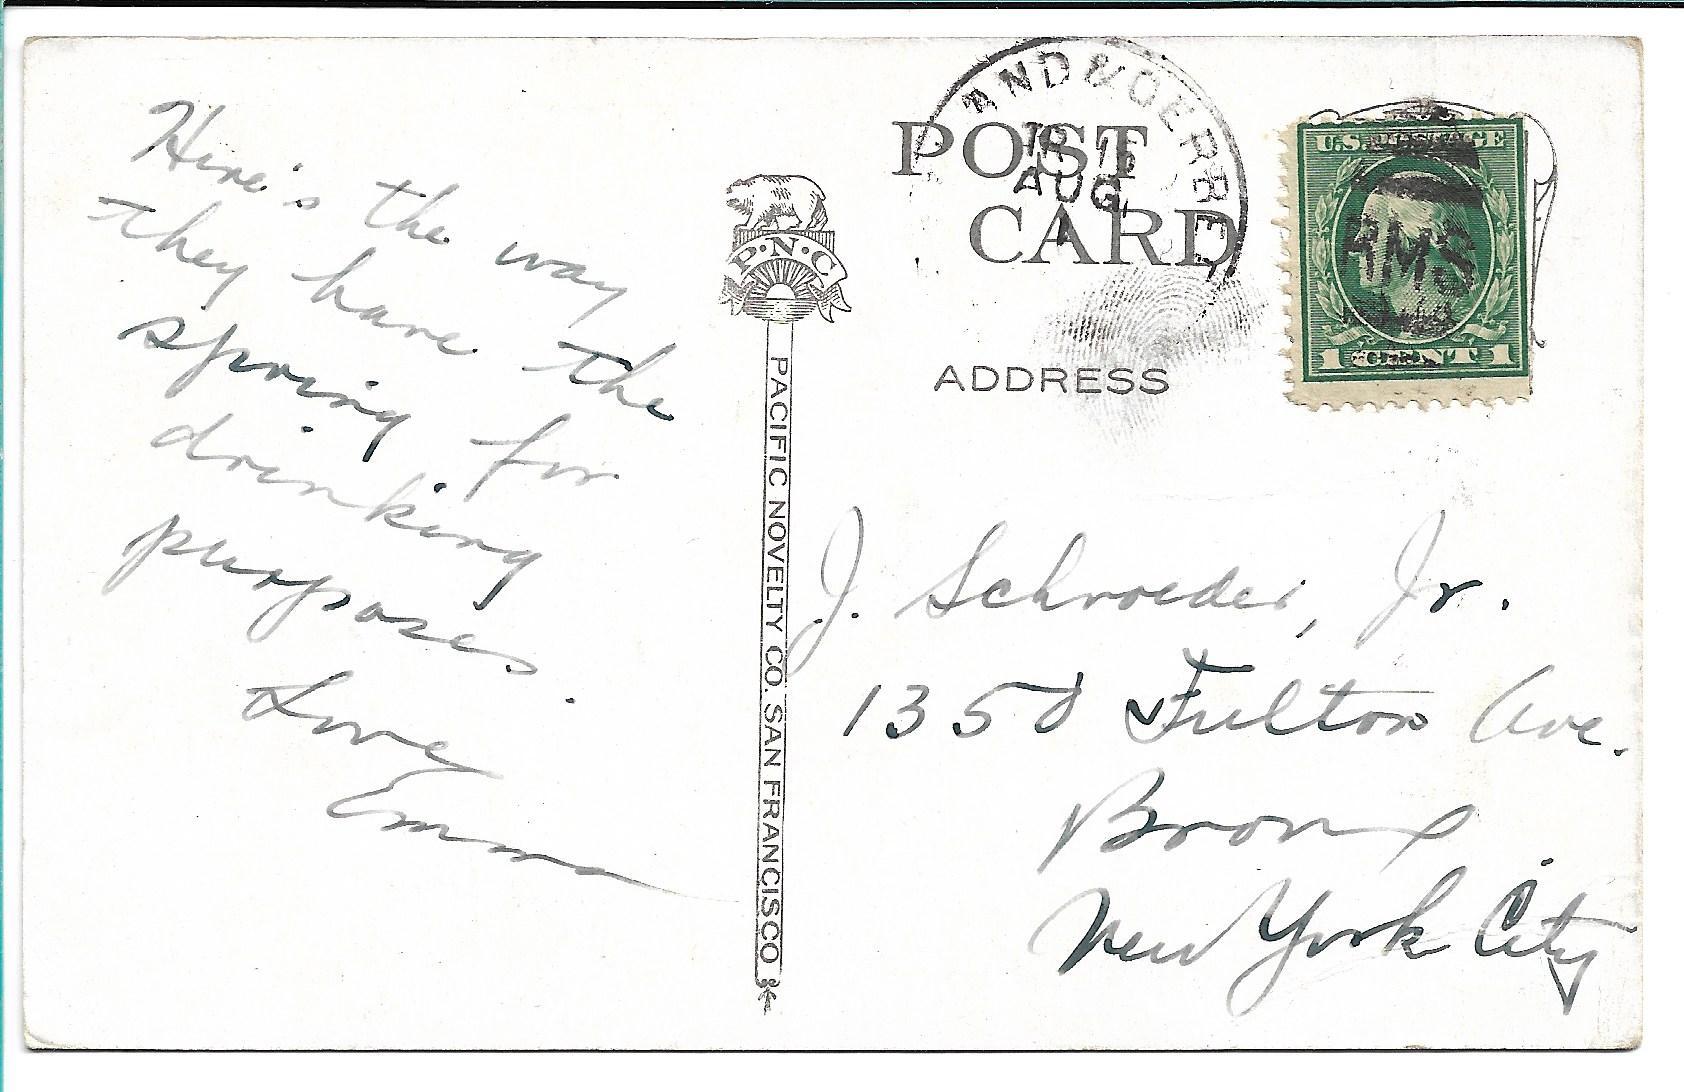 Here's the way
they have the
spring for
drinking
purposes.
Love
Emma
P·N·C
PACIFIC NOVELTY CO. SAN FRANCISCO
POST
CARD
ADDRESS
AUG
1
U.S. POSTAGE
RMS
1 CENT 1
J. Schroeder, Jr.
1350 Fulton Ave.
Bronx
New York City